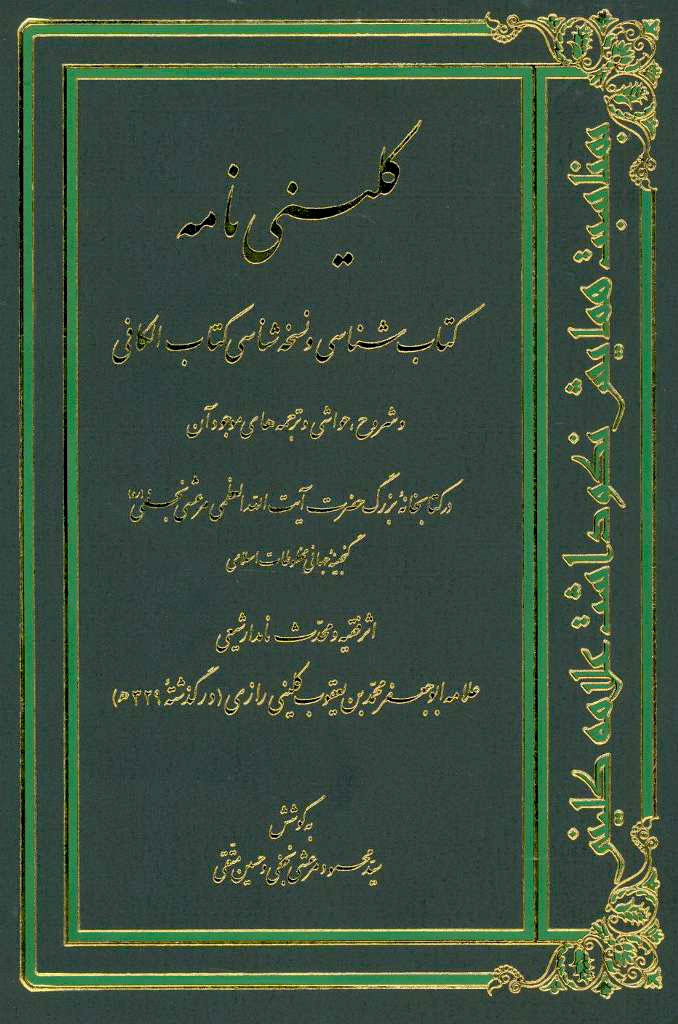 کلینی نامه
کتاب شناسی و نسخه شناسی کتاب الکافی
و شروح، حواشی و ترجمه های موجود آن
در کتابخانهٔ بزرگ حضرت آیت الله العظمی مرعشی نجفی (ره)
گنجینهٔ جهانی مخطوطات اسلامی
اثر فقیه و محدث نامدار شیعی
علامه ابوجعفر محمد بن یعقوب کلینی رازی (درگذشتهٔ ۳۲۹ ه)
به کوشش
سید محمود مرعشی نجفی و حسین متقی
بمناسبت همایش نکوداشت علامه کلینی